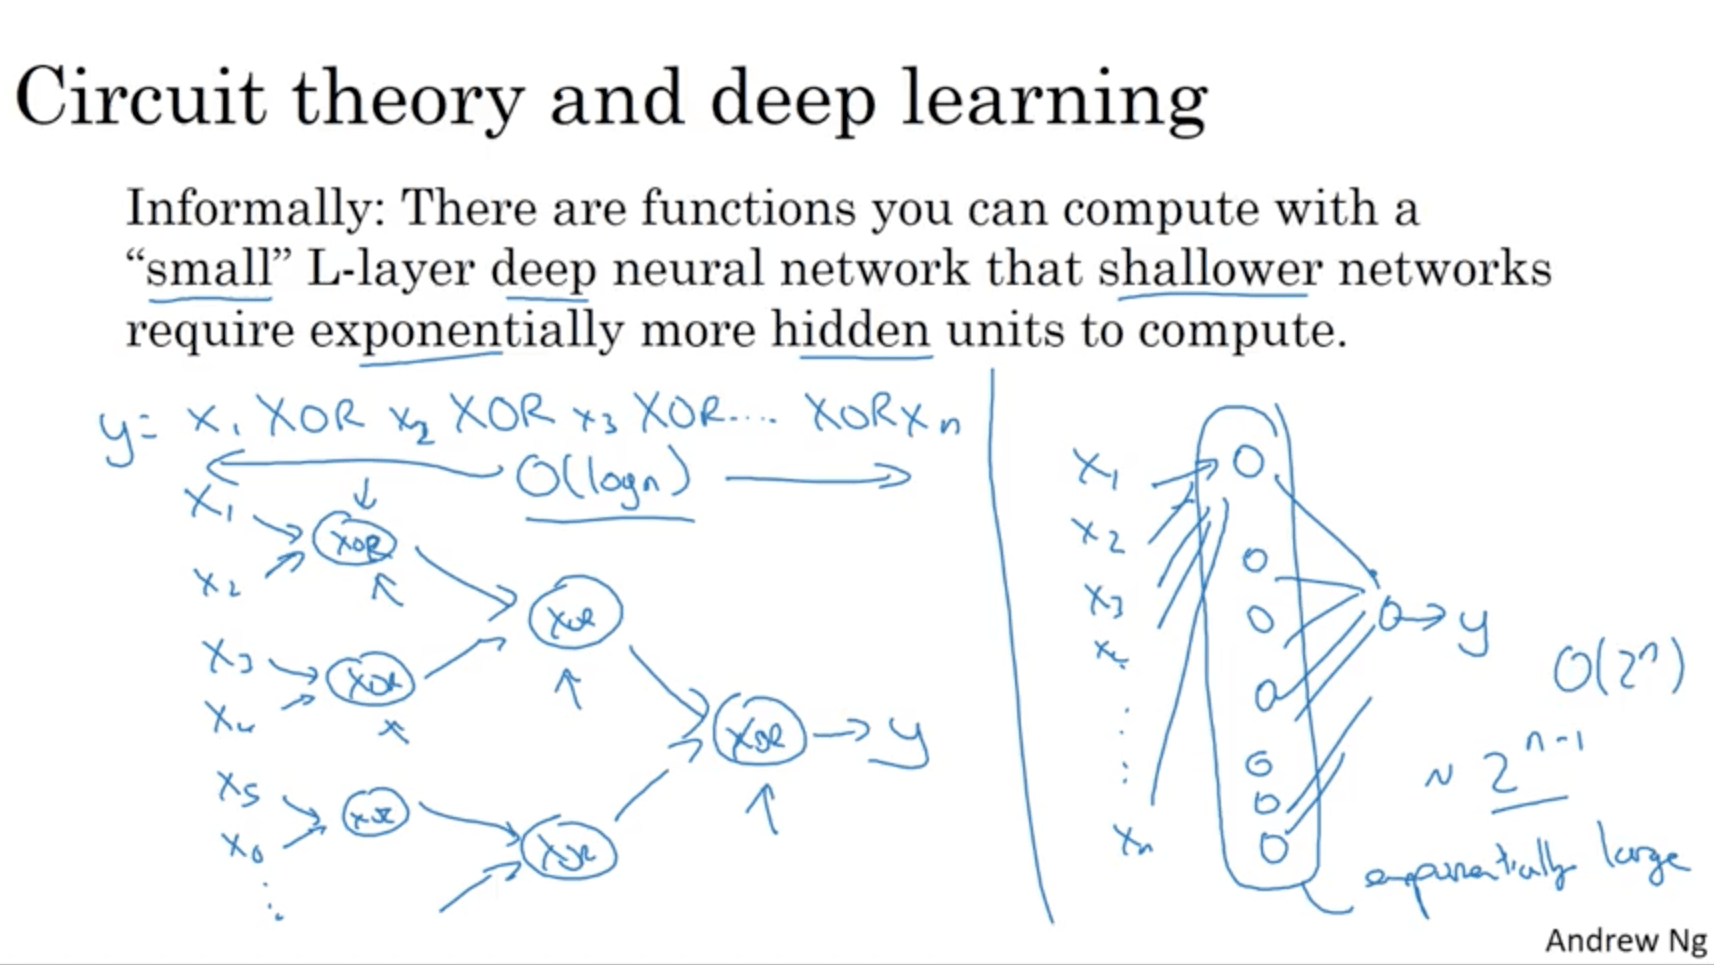 Circuit theory and deep learning
Informally: There are functions you can compute with a
“small” L-layer deep neural network that shallower networks
require exponentially more hidden units to compute.
y = x₁ XOR x₂ XOR x₃ XOR.... XOR xₙ
O(log n)
x₁
XOR
x₂
XOR
x₃
XOR
x₄
XOR → y
x₅
XOR
x₆
XOR
x₁
x₂
x₃
x₄
xₙ
y
O(2ⁿ)
~ 2ⁿ⁻¹
exponentially large
Andrew Ng